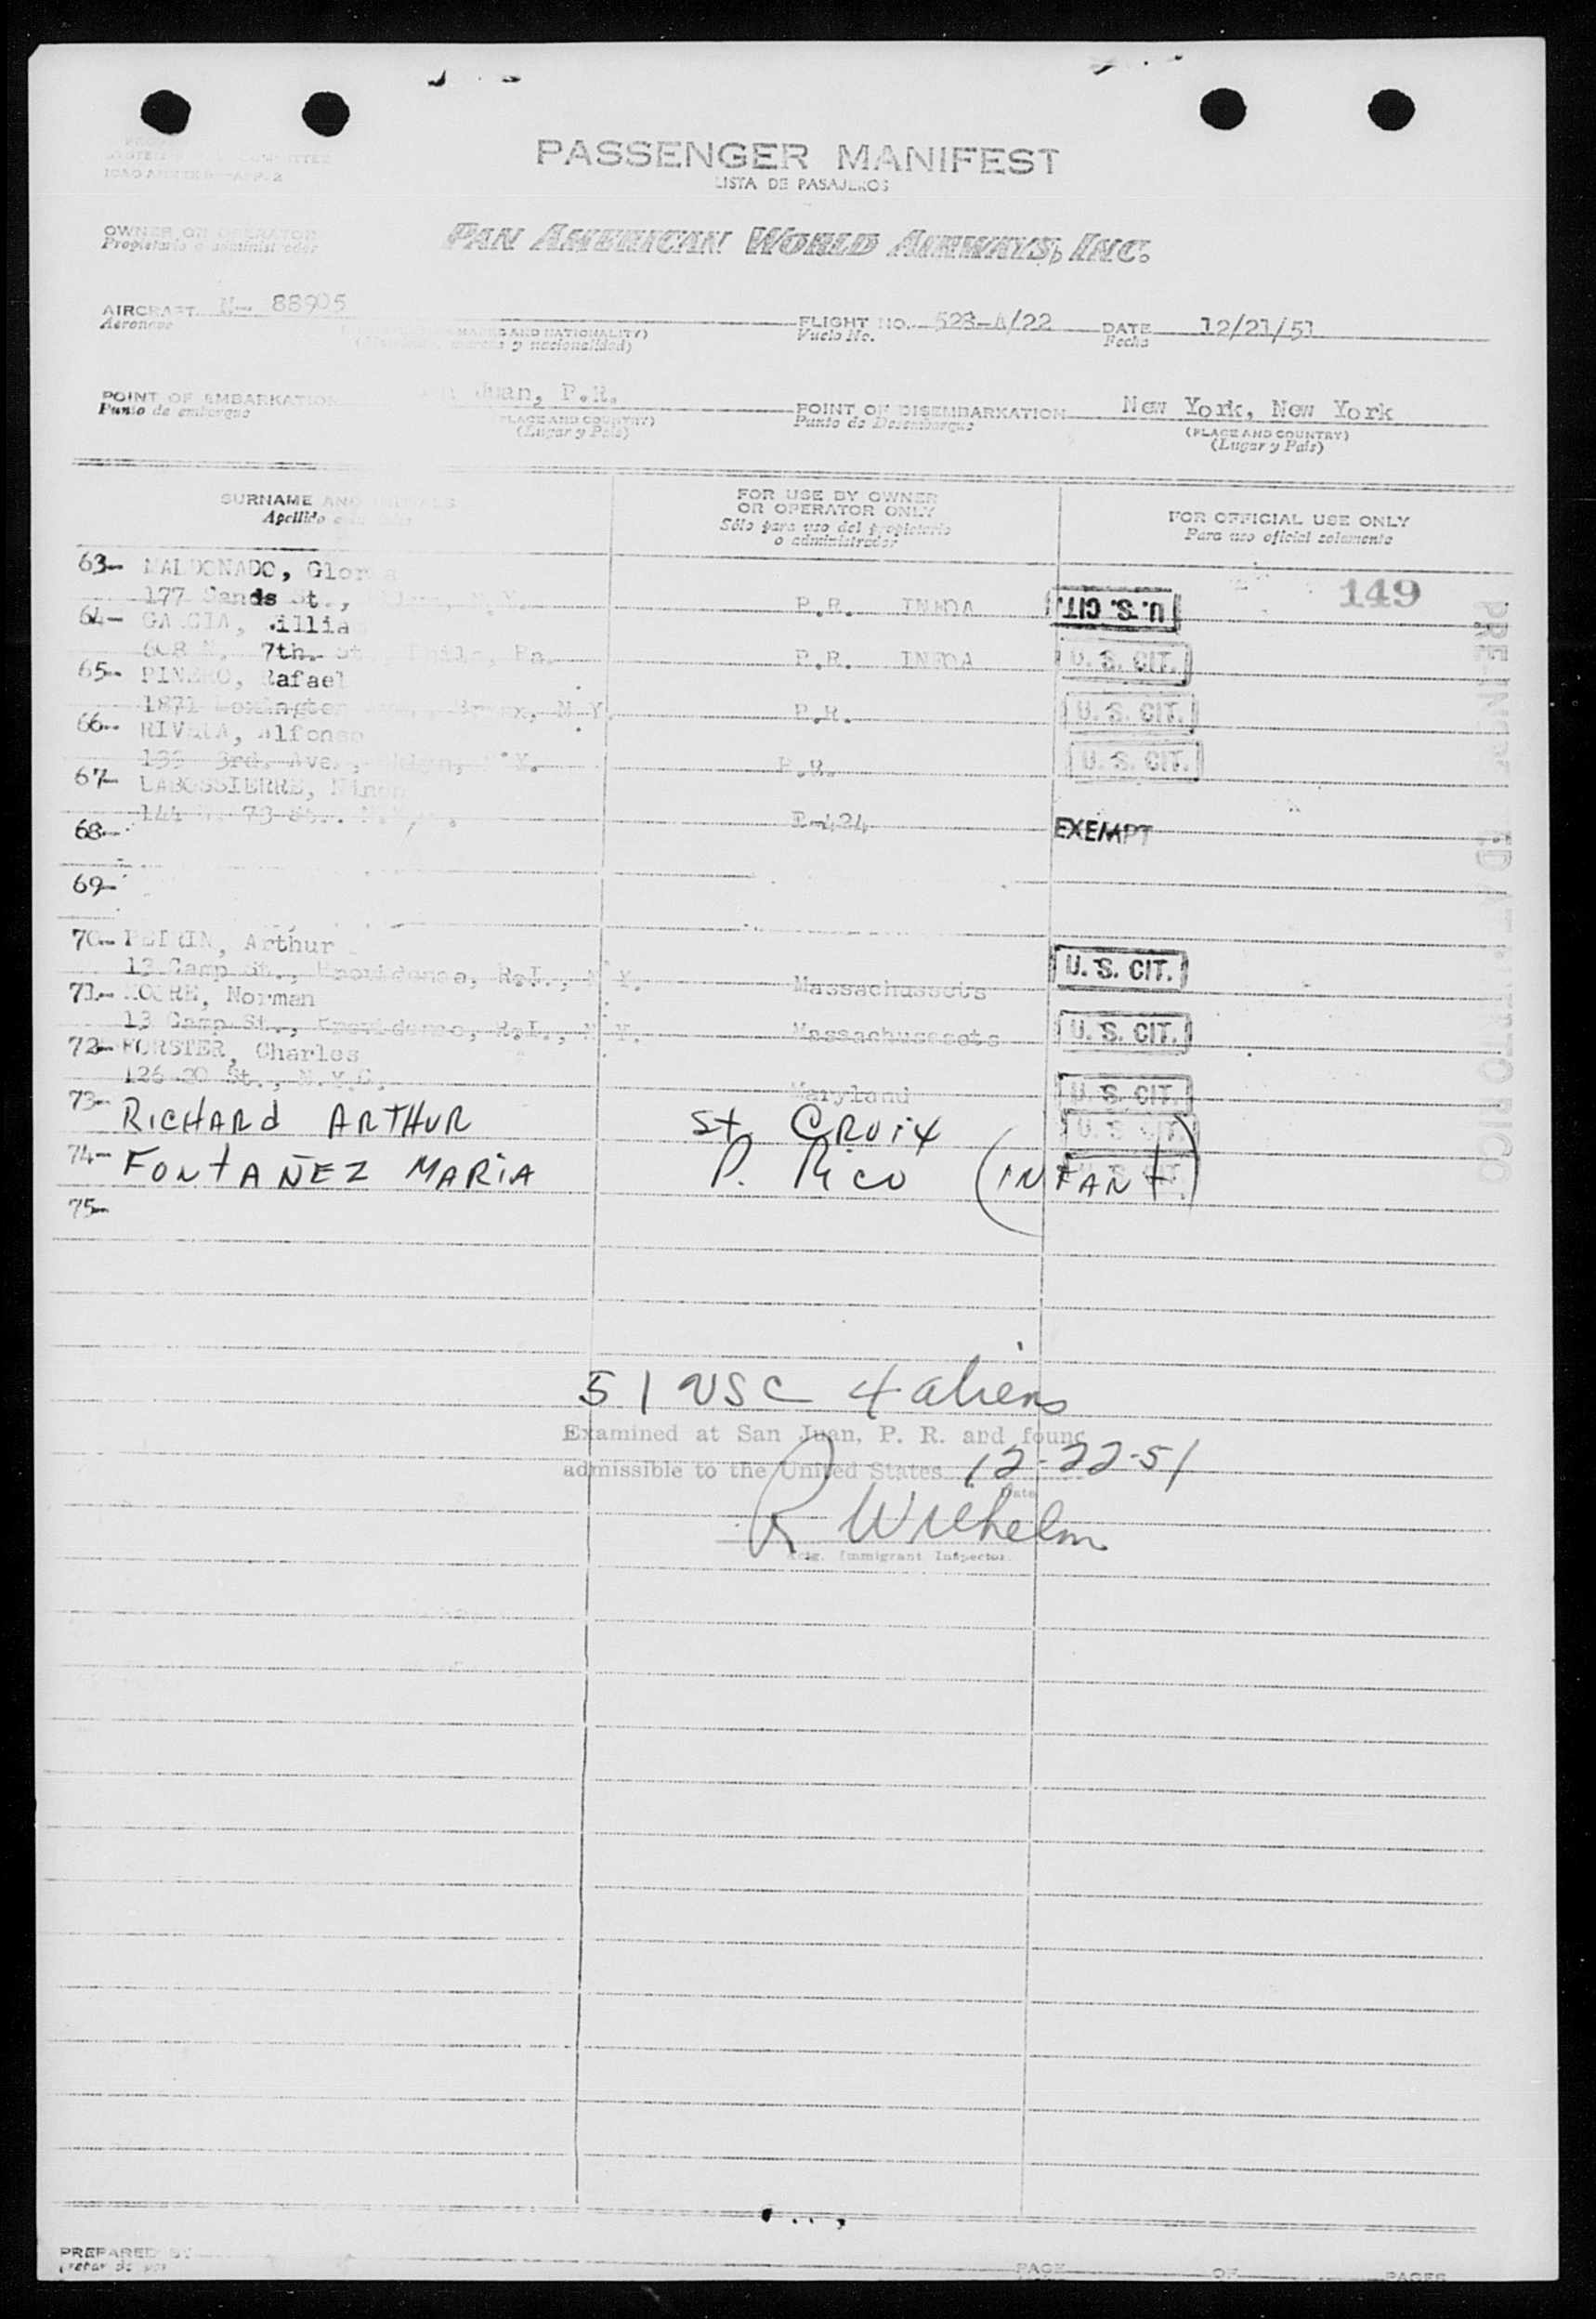 PASSENGER MANIFEST
LISTA DE PASAJEROS
OWNER OR OPERATOR
Propietario o administrador
PAN AMERICAN WORLD AIRWAYS, INC.
AIRCRAFT N- 88905
Aeronave
MARKS AND NATIONALITY)
marcas y nacionalidad)
FLIGHT NO. 528-A/22
Vuelo No.
DATE 12/21/51
Fecha
POINT OF EMBARKATION Juan, P.R.
Punto de embarque
(PLACE AND COUNTRY)
(Lugar y País)
POINT OF DISEMBARKATION New York, New York
Punto de Desembarque
(PLACE AND COUNTRY)
(Lugar y País)
SURNAME AND INITIALS
Apellido
FOR USE BY OWNER
OR OPERATOR ONLY
Sólo para uso del propietario
o administrador
FOR OFFICIAL USE ONLY
Para uso oficial solamente
149
63- MALDONADO, Gloria
177 Sands St., N.Y. P.R. U.S. CIT.
64- GARCIA,
608 N. 7th. St Phila, Pa. P.R. U. S. CIT.
65- PINERO, Rafael
1871 Lexington Bronx, N.Y. P.R. U. S. CIT.
66- RIVERA, Alfonso
3rd. Ave., N.Y. P.R. U. S. CIT.
67- LABOSSIERRE,
144 73 St. N.Y. EXEMPT
68-
69-
70- Arthur
13 Camp St., Providence, R.I., N.Y. Massachussets U. S. CIT.
71- MOORE, Norman
13 Camp St., Providence, R.I., N.Y. Massachussets U. S. CIT.
72- FORSTER, Charles
126 St., N.Y.C. Maryland U. S. CIT.
73- RICHARD ARTHUR St CROIX U. S. CIT.
74- FONTAÑEZ MARIA P. RICO (INFANT)
75-
51 USC 4 aliens
Examined at San Juan, P. R. and found
admissible to the United States 12-22-51
Date
R Wilhelm
Actg. Immigrant Inspector
PREPARED BY
PAGE OF PAGES